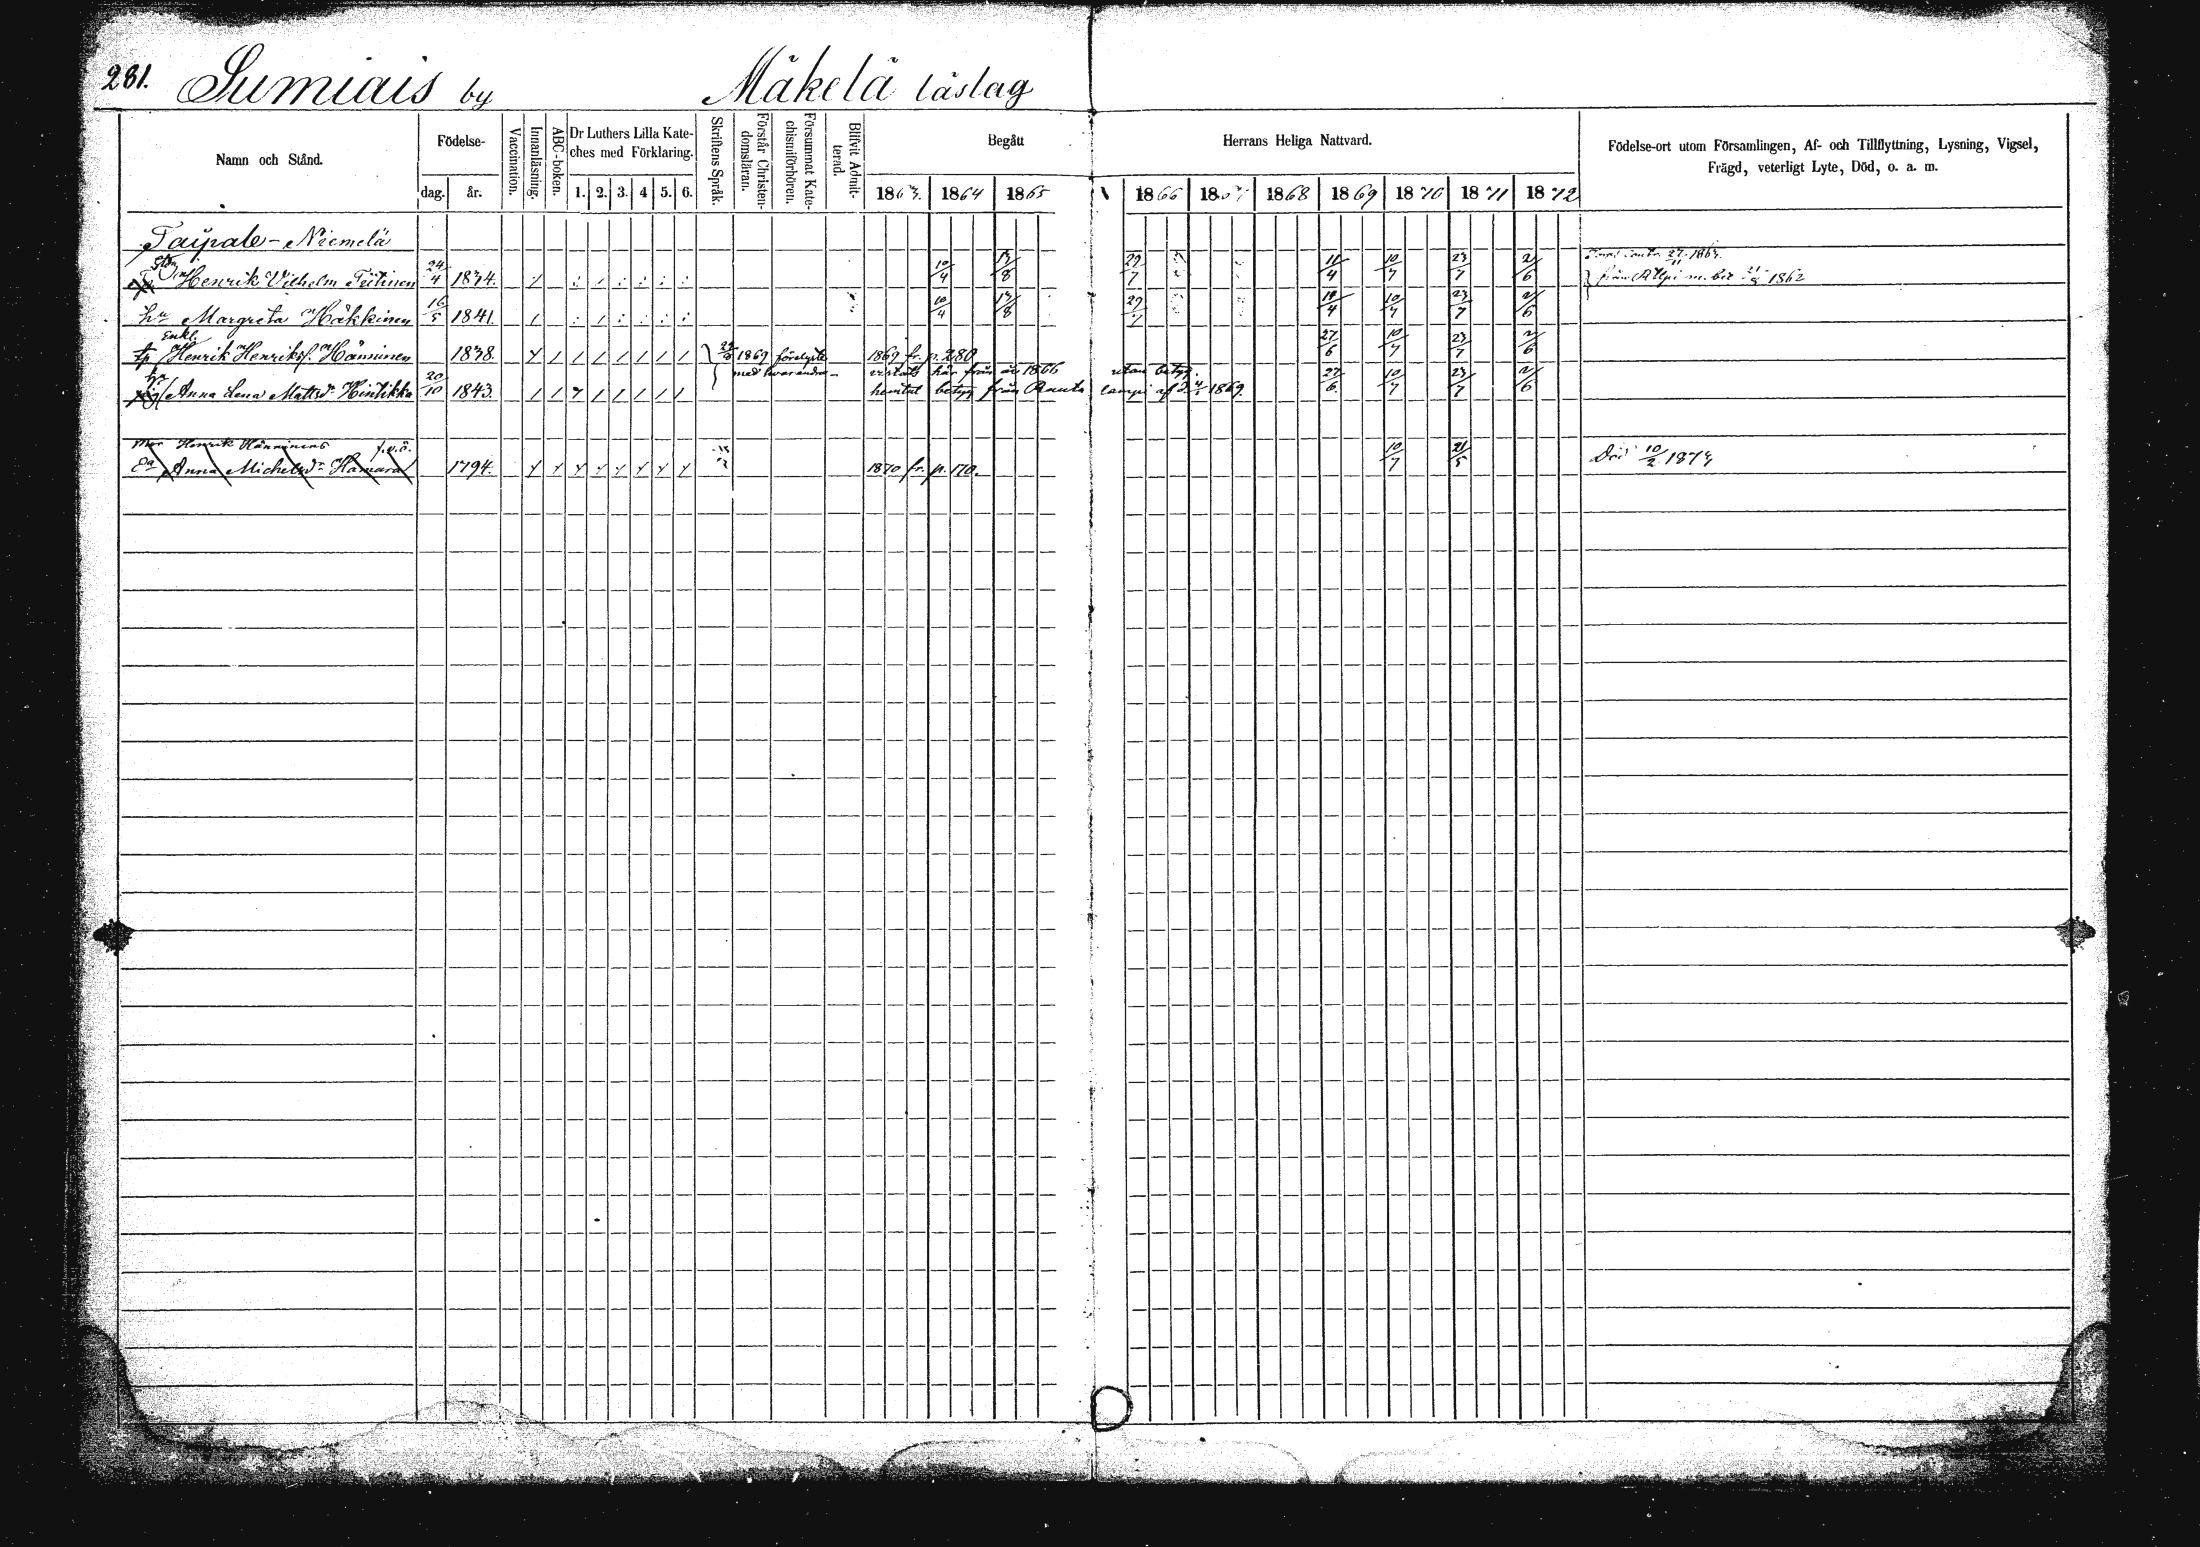 281. Sumiais by Mäkelä läslag
Namn och Stånd. Födelse- Vaccination. Innanläsning. ABC-boken. Dr Luthers Lilla Kate-ches med Förklaring. Skriftens Språk. Förstår Christen-domsläran. Försummat Kate-chismiförhören. Blifvit Admit-terad. Begått Herrans Heliga Nattvard. Födelse-ort utom Församlingen, Af- och Tillflyttning, Lysning, Vigsel, Frägd, veterligt Lyte, Död, o. a. m.
dag. år. 1. 2. 3. 4 5. 6. 1863. 1864 1865 1866 1867 1868 1869 1870 1871 1872
Taipale-Niemelä
Henrik Vilhelm 24/4 1834. 10/4 13/8 29/7 11/4 10/7 23/7 2/6 från m. bet 1862
hu Margreta Häkkinen 16/5 1841. 10/4 13/8 29/7 11/4 10/7 23/7 2/6
Enkl.
Henrik Henrikss. Hänninen 1838. 1869 förelyste 1869 fr. p. 280 27/6 10/7 23/7 2/6
med hvarandra vistats här från år 1866 utan betyg.
Anna Lena Mattsdr Hintikka 20/10 1843. hemtat betyg från Rautalampi af d. 1869. 27/6 10/7 23/7 2/6
Mor Henrik Hänninens
Ea Anna Michelsdr Hamara 1794. 1870 fr. p. 170. 10/7 21/5 Död 10/2 1874